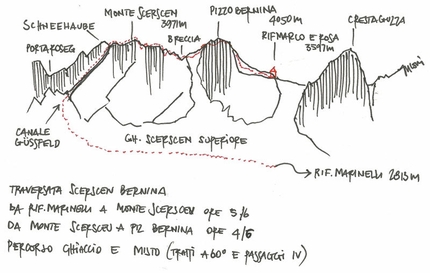 SCHNEEHAUBE
MONTE SCERSCEN
3971m
PIZZO BERNINA
4050m
CRESTAGUZZA
PORTA ROSEG
BRECCIA
RIF MARCO E ROSA
3597m
CANALE
GÜSSFELD
GH. SCERSCEN SUPERIORE
RIF. MARINELLI 2813m
TRAVERSATA SCERSCEN BERNINA
DA RIF. MARINELLI A MONTE SCERSCEN ORE 5/6
DA MONTE SCERSCEN A PIZ BERNINA ORE 4/5
PERCORSO GHIACCIO E MISTO (TRATTI A 60° E PASSAGGI IV)